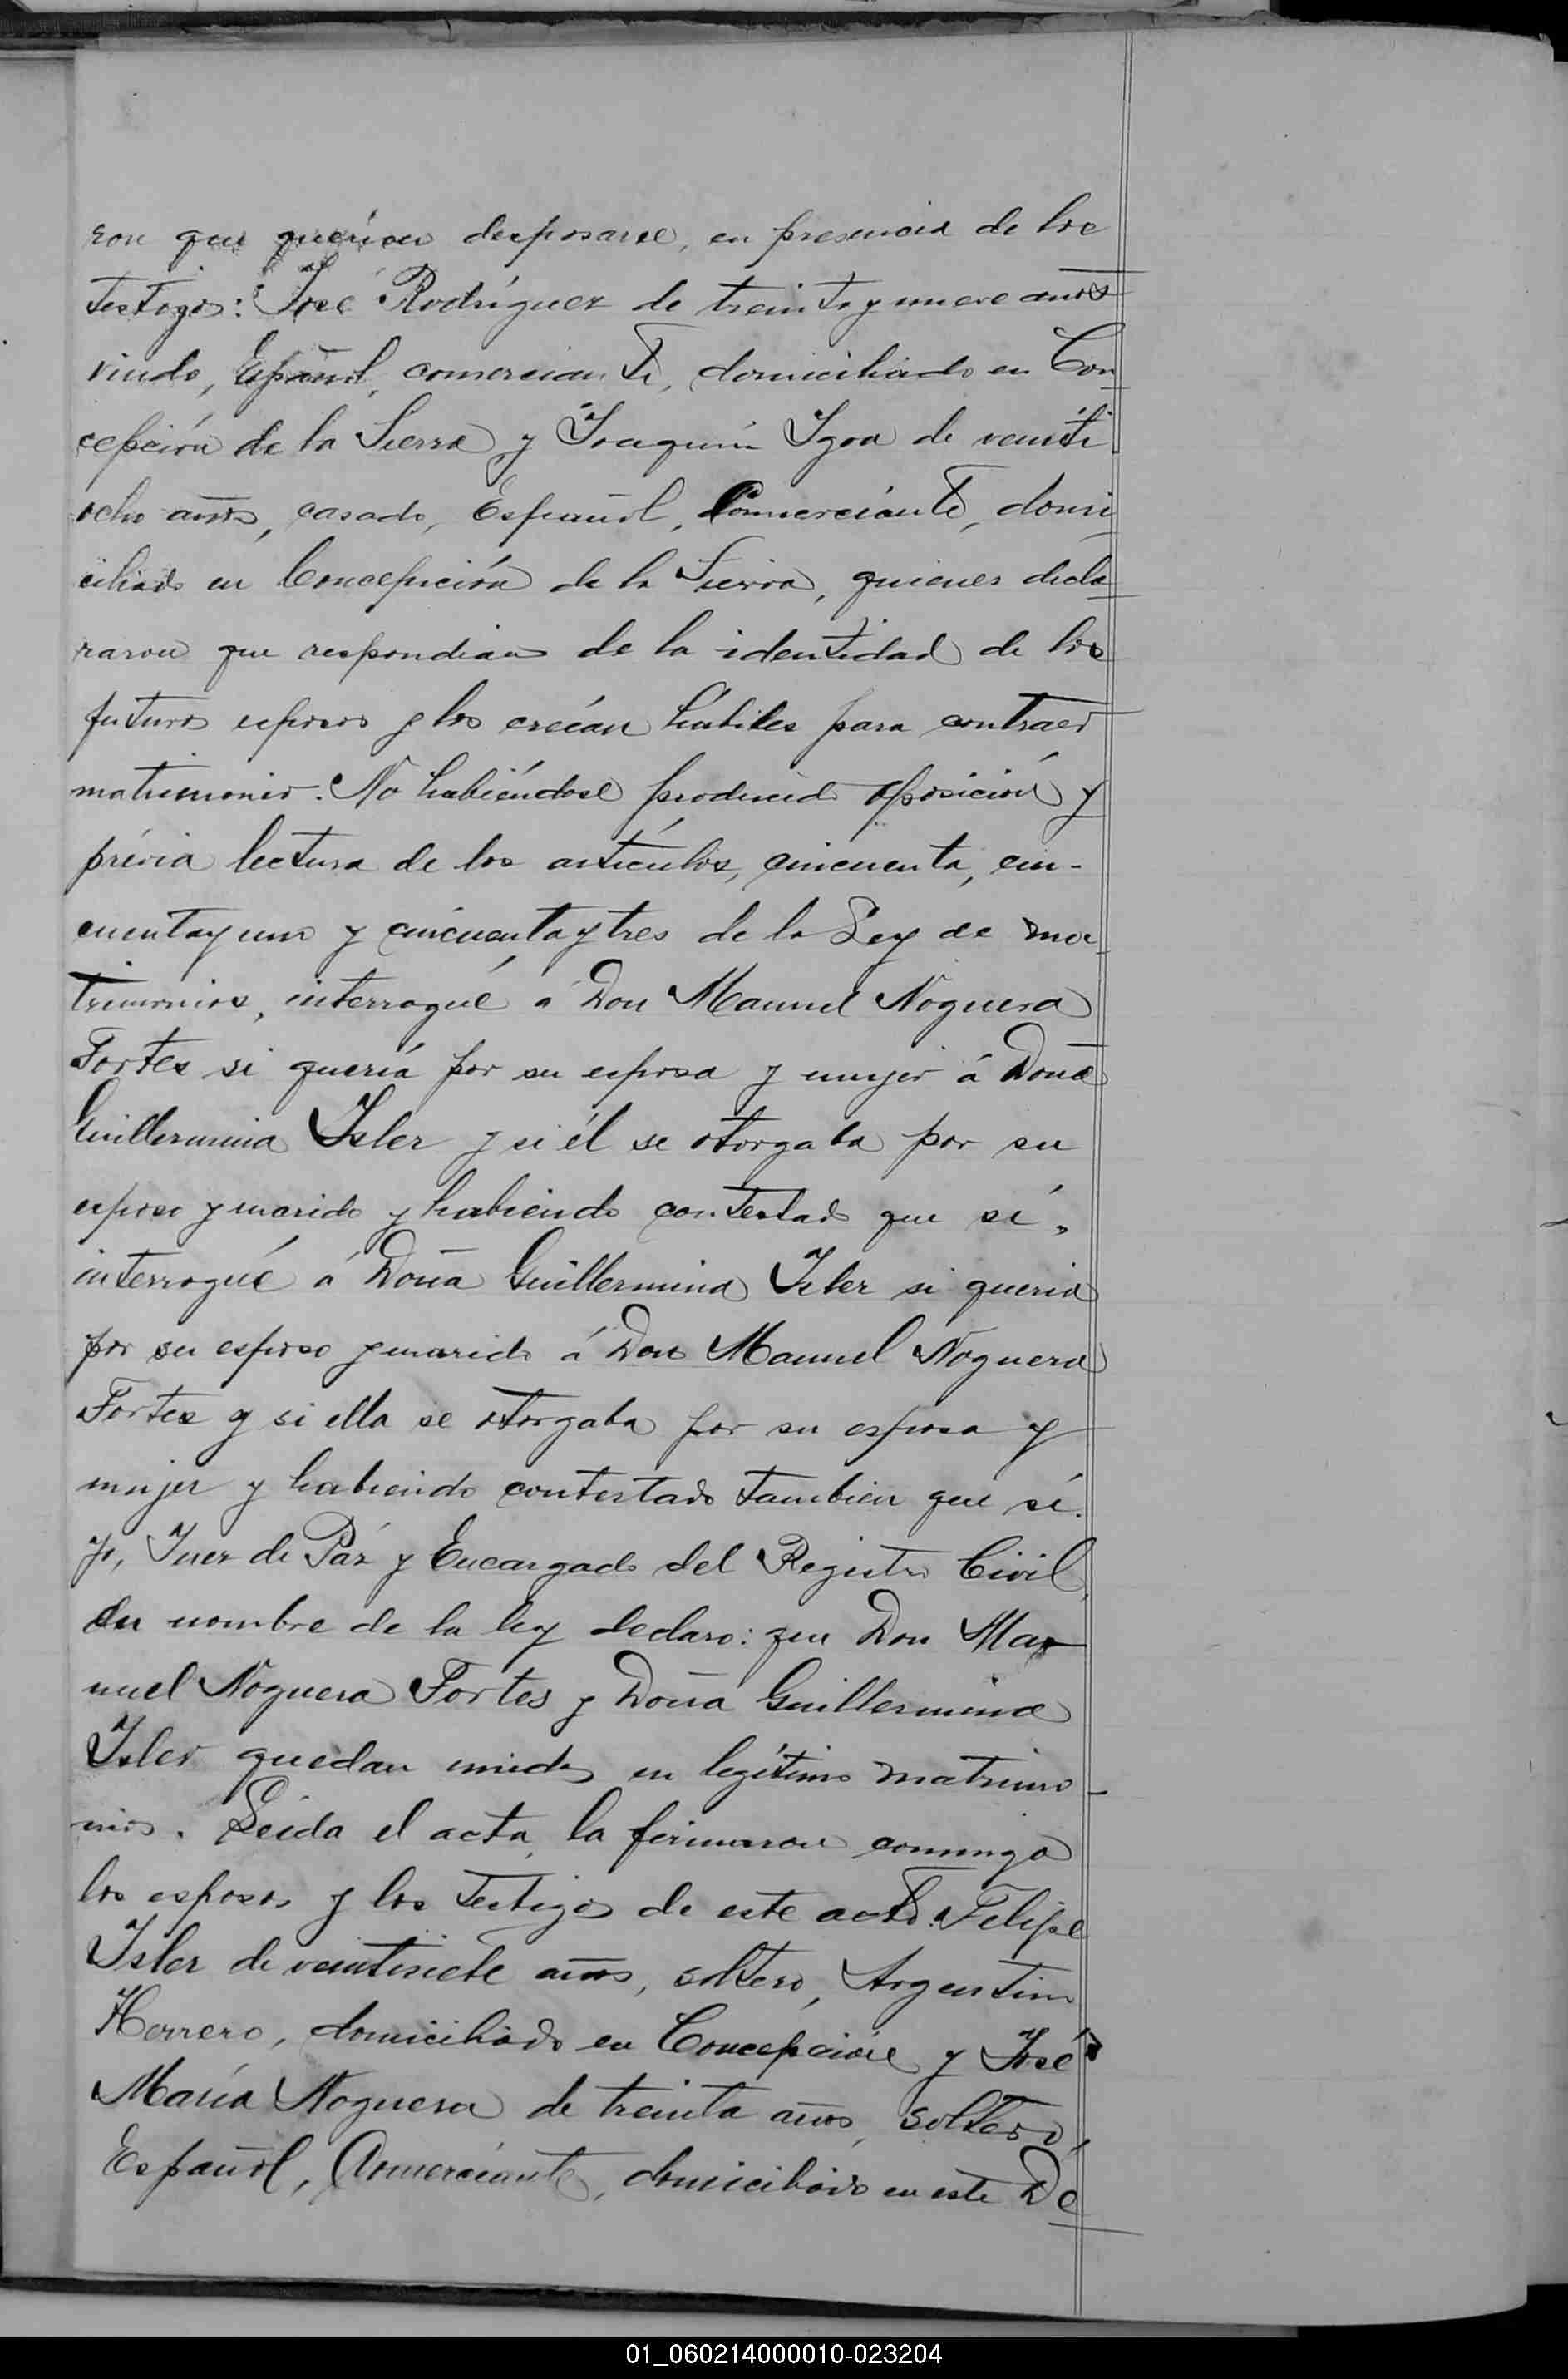 ron que querían desposarse, en presencia de los
testigos: José Rodríguez de treinta y nueve años
viudo, Español, comerciante, domiciliado en Con
cepción de la Sierra y Joaquín Igoa de veinti
ocho años, casado, Español, Comerciante, domi
ciliado en Concepción de la Sierra, quienes decla
raron que respondian de la identidad de los
futuros esposos y los creían hábiles para contraer
matrimonio. No habiéndose producido oposición y
prévia lectura de los artículos, cincuenta, cin-
cuenta y uno y cincuenta y tres de la Ley de ma
trimonios, interrogué á Don Manuel Noguera
Fortes si quería por su esposa y mujer á Doña
Guillermina Isler y si él se otorgaba por su
esposo y marido y habiendo contestado que sí,
interrogué á Doña Guillermina Isler si queria
por su esposo y marido á Don Manuel Noguera
Fortes y si ella se otorgaba por su esposa y
mujer y habiendo contestado tambien que sí.
yo, Juez de Páz y Encargado del Registro Civil,
en nombre de la ley declaro: que Don Ma
nuel Noguera Fortes y Doña Guillermina
Isler quedan unidos en legítimo matrimo-
nio. Leida el acta, la firmaron conmigo
los esposos y los testigos de este acto: Felipe
Isler de veintisiete años, soltero, Argentino
Herrero, domiciliado en Concepción y José
María Noguera de treinta años, soltero,
Español, Comerciante, domiciliado en este De
01_060214000010-023204